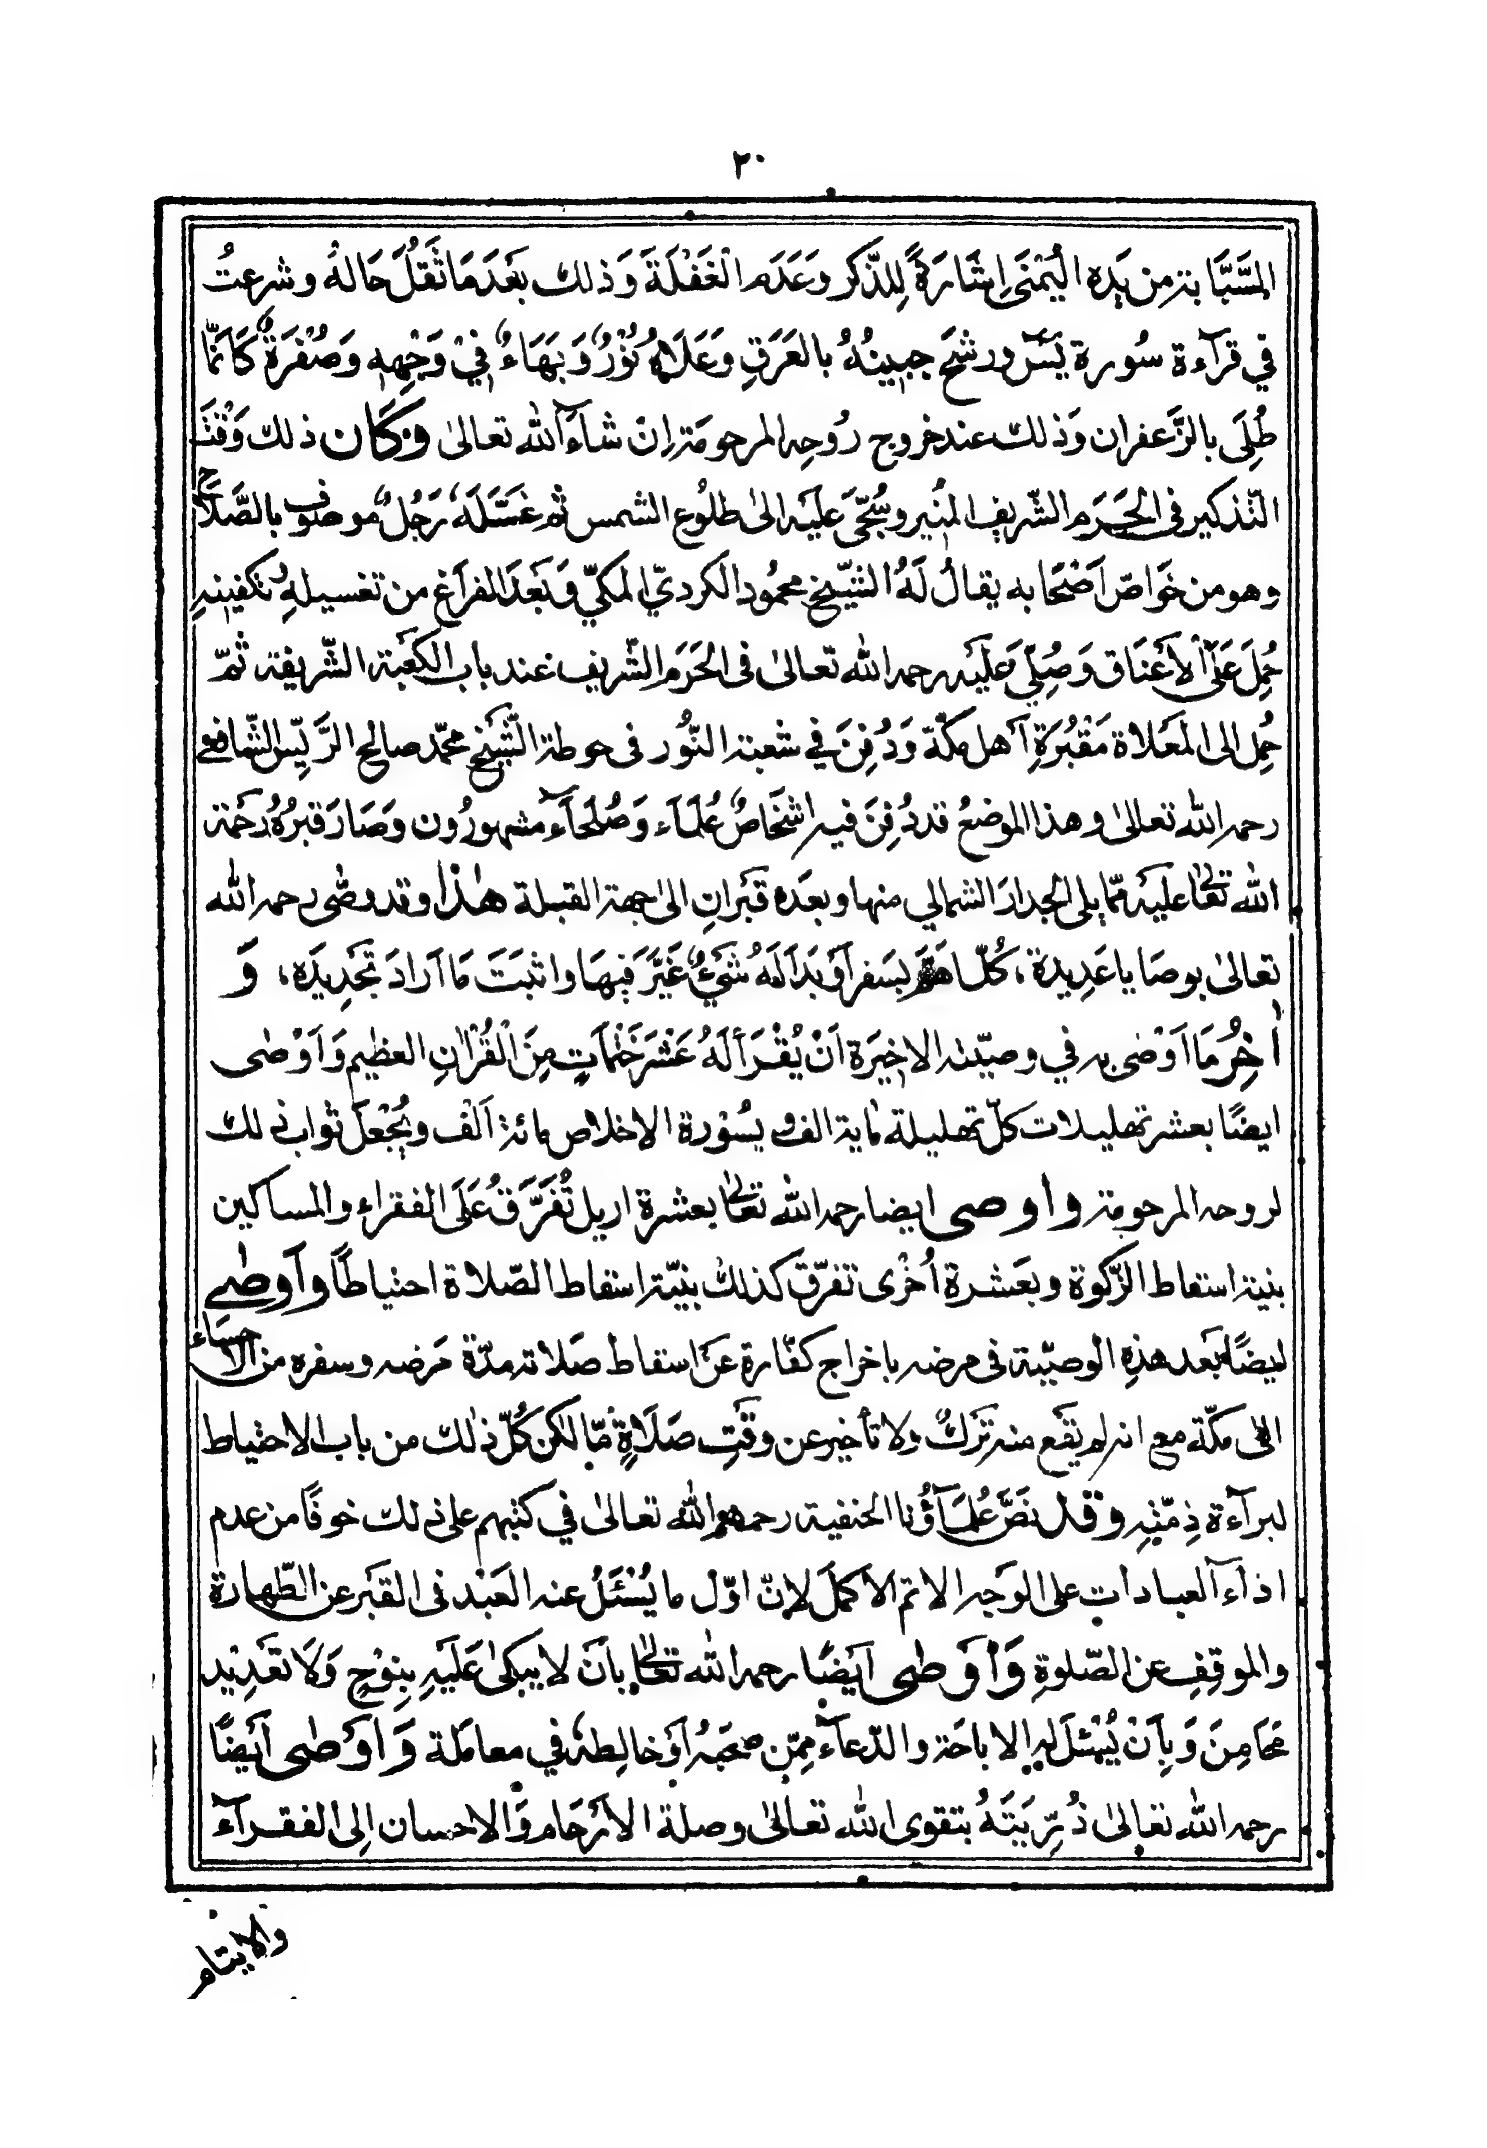 ٢٠
المسَّبَّابة من يَدِه اليُمنَى اِشَارَةً لِلذّكر وعَدَم الغَفْلَة وَذلك بَعدَمَا ثَقُلَ حَالهُ وشرعتُ
في قرآءة سُورة يٓسٓ ورشحَ جبِينُهُ بالعَرَقِ وَعَلَاهُ نُوْرٌ وَبَهَاءٌ فِيْ وَجْهِهِ وَصُفْرَةٌ كَانَّمَا
طُلِىَ بالزَّعفران وَذلك عند خروج رُوحِه المرحومة اِنْ شآءَ الله تعالىٰ وكَان ذلك وَقْتَ
التّذكير فى الحَرَم الشّريف المُنِير وسُجّىَ عليَه الىٰ طلوُع الشمس ثم غسَّلَهُ رَجُلٌ موصُوف بالصَّلَاح
وهو من خَوَاصّ اَصْحَابه يقالُ لَهُ الشّيخ محمُود الكرديّ المكيّ وَبَعْدَ الفرَاغ من تغسيلهِ وتكفينهِ
حُمِلَ عَلَى الاَعْنَاق وَصُلِّيَ عَليَه رحمه الله تعالىٰ فى الحَرَم الشّريف عند باب الكعبَة الشّريفة ثمّ
حُمِل الى المَعَلَاة مَقْبُرَةِ اَهل مكّة وَدُفِنَ فِي شعبة النُّور فى حوطة الشّيخ محمّد صالح الرَّيّس الشّافعى
رحمه الله تعالىٰ وهذا الموضعُ قد دُفِنَ فيه اشخَاصٌ عُلَمَاء وَصُلَحَآء مشهورُون وَصَارَ قبرُهُ رَحْمَة
الله تعالىٰ عليَه ممّا يلى الجِدَارَ الشمالي منها وبعدَه قَبْرانِ الىٰ جهة القبلة هٰذا وقد وصّٰى رحمه الله
تعالىٰ بوصَايا عَدِيدة، كُلّما هَمَّ بسَفرٍ اَوْ بَدَا لَهُ شَيْءٌ غَيَّرَ فِيهَا واثبَتَ مَا اَرَادَ تَجْدِيدَه، وَ
اٰخِرُ مَا اَوْصٰى به فِي وصيّته الاخِيَرة اَنْ يُقْرَأ لَهُ عَشَرَ خَتْمَاتٍ مِنَ القُرْاٰنِ العظِيم وَاَوْصٰى
ايضًا بعشر تهليلات كلّ تهليلة مٰاية الف وبِسُوْرة الاخلاص مائة اَلْف ويُجْعَلَ ثواب ذلك
لروحه المرحومة واوصى ايضا رحمه الله تعالىٰ بعشرة اريل تُفَرَّقُ عَلَى الفقراءِ والمساكين
بنية اسقاط الزّكوة وبعَشرة اُخْرٰى تفرّق كذلك بنيّة اسقاط الصّلاة احتياطًا واَوصٰى
ايضًا بَعد هذِه الوصيّة فى مرضه باخراج كفّارة عَنْ اسقاط صَلاته مدّة مَرضه وسفره من الاحساء
الىٰ مكّة مع انه لم يَقَع منه تَرْكٌ ولا تأخير عن وقْتِ صَلَاةٍ مّا لكنْ كُلّ ذٰلك من باب الاحتياط
لبرآءة ذِمّتِه وقد نصَّ عُلمَآؤُنا الحنفية رحمهم الله تعالىٰ فِي كتبِهِم على ذلك خوفًا من عدم
ادآء العبادات على الوجه الاتمّ الاكملَ لانّ اوّل ما يُسْئَلُ عنه العَبْد فى القَبَر عن الطّهارة
والموقِفِ عن الصّلوةِ وَأَوْصٰى اَيْضًا رحمه الله تعالىٰ بأَن لا يبكىٰ عَلَيهِ بِنوْحٍ وَلَا تَعْدِيْد
مَحَامِنَ وَبِاَنْ يُسْئلَ له الاباحَة والدّعَآء مِمّن صَحِبَه اَوْ خَالِطَه فِي معاملَة وَاَوْصٰى اَيضًا
رحمه الله تعالىٰ ذُرِّيَتَهُ بتقوى الله تعالىٰ وصلة الاَرْحَام وَالاحسان اِلى الفقرآء
والايتام